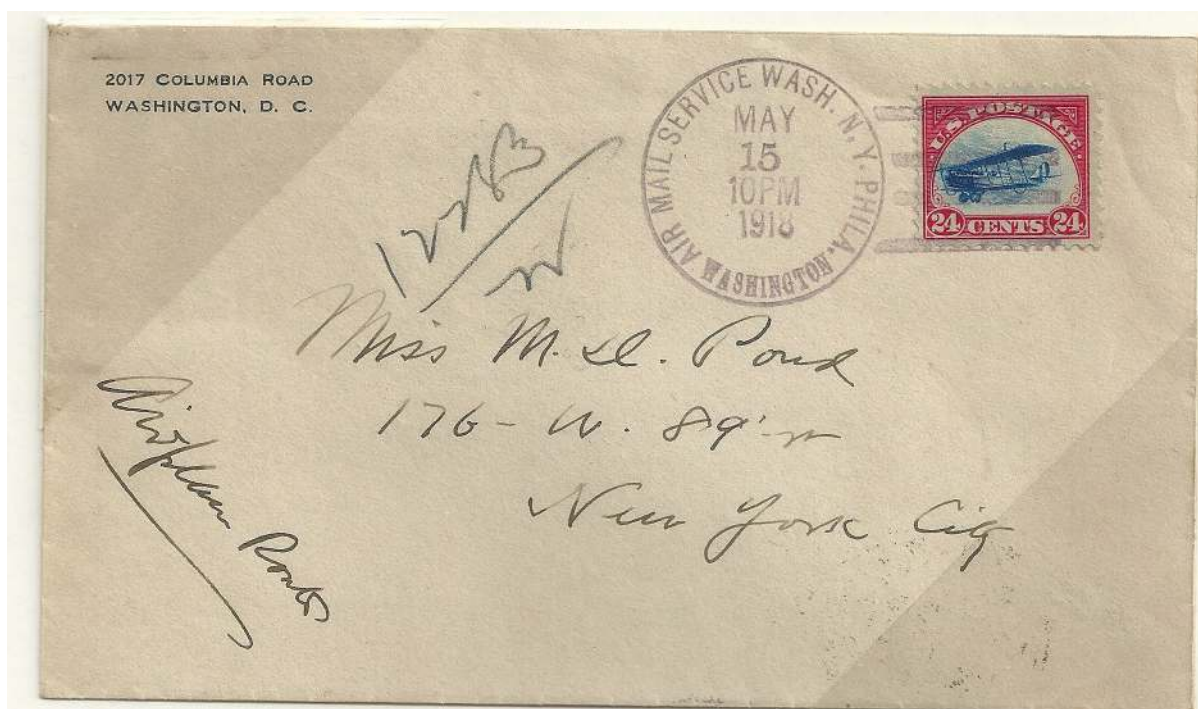 2017 COLUMBIA ROAD
WASHINGTON, D. C.
AIR MAIL SERVICE WASH. N.Y. PHILA.
MAY
15
10PM
1918
WASHINGTON
U.S. POSTAGE
24 CENTS 24
Miss M. D. Pond
176 - W. 89
New York City
Airplane Route